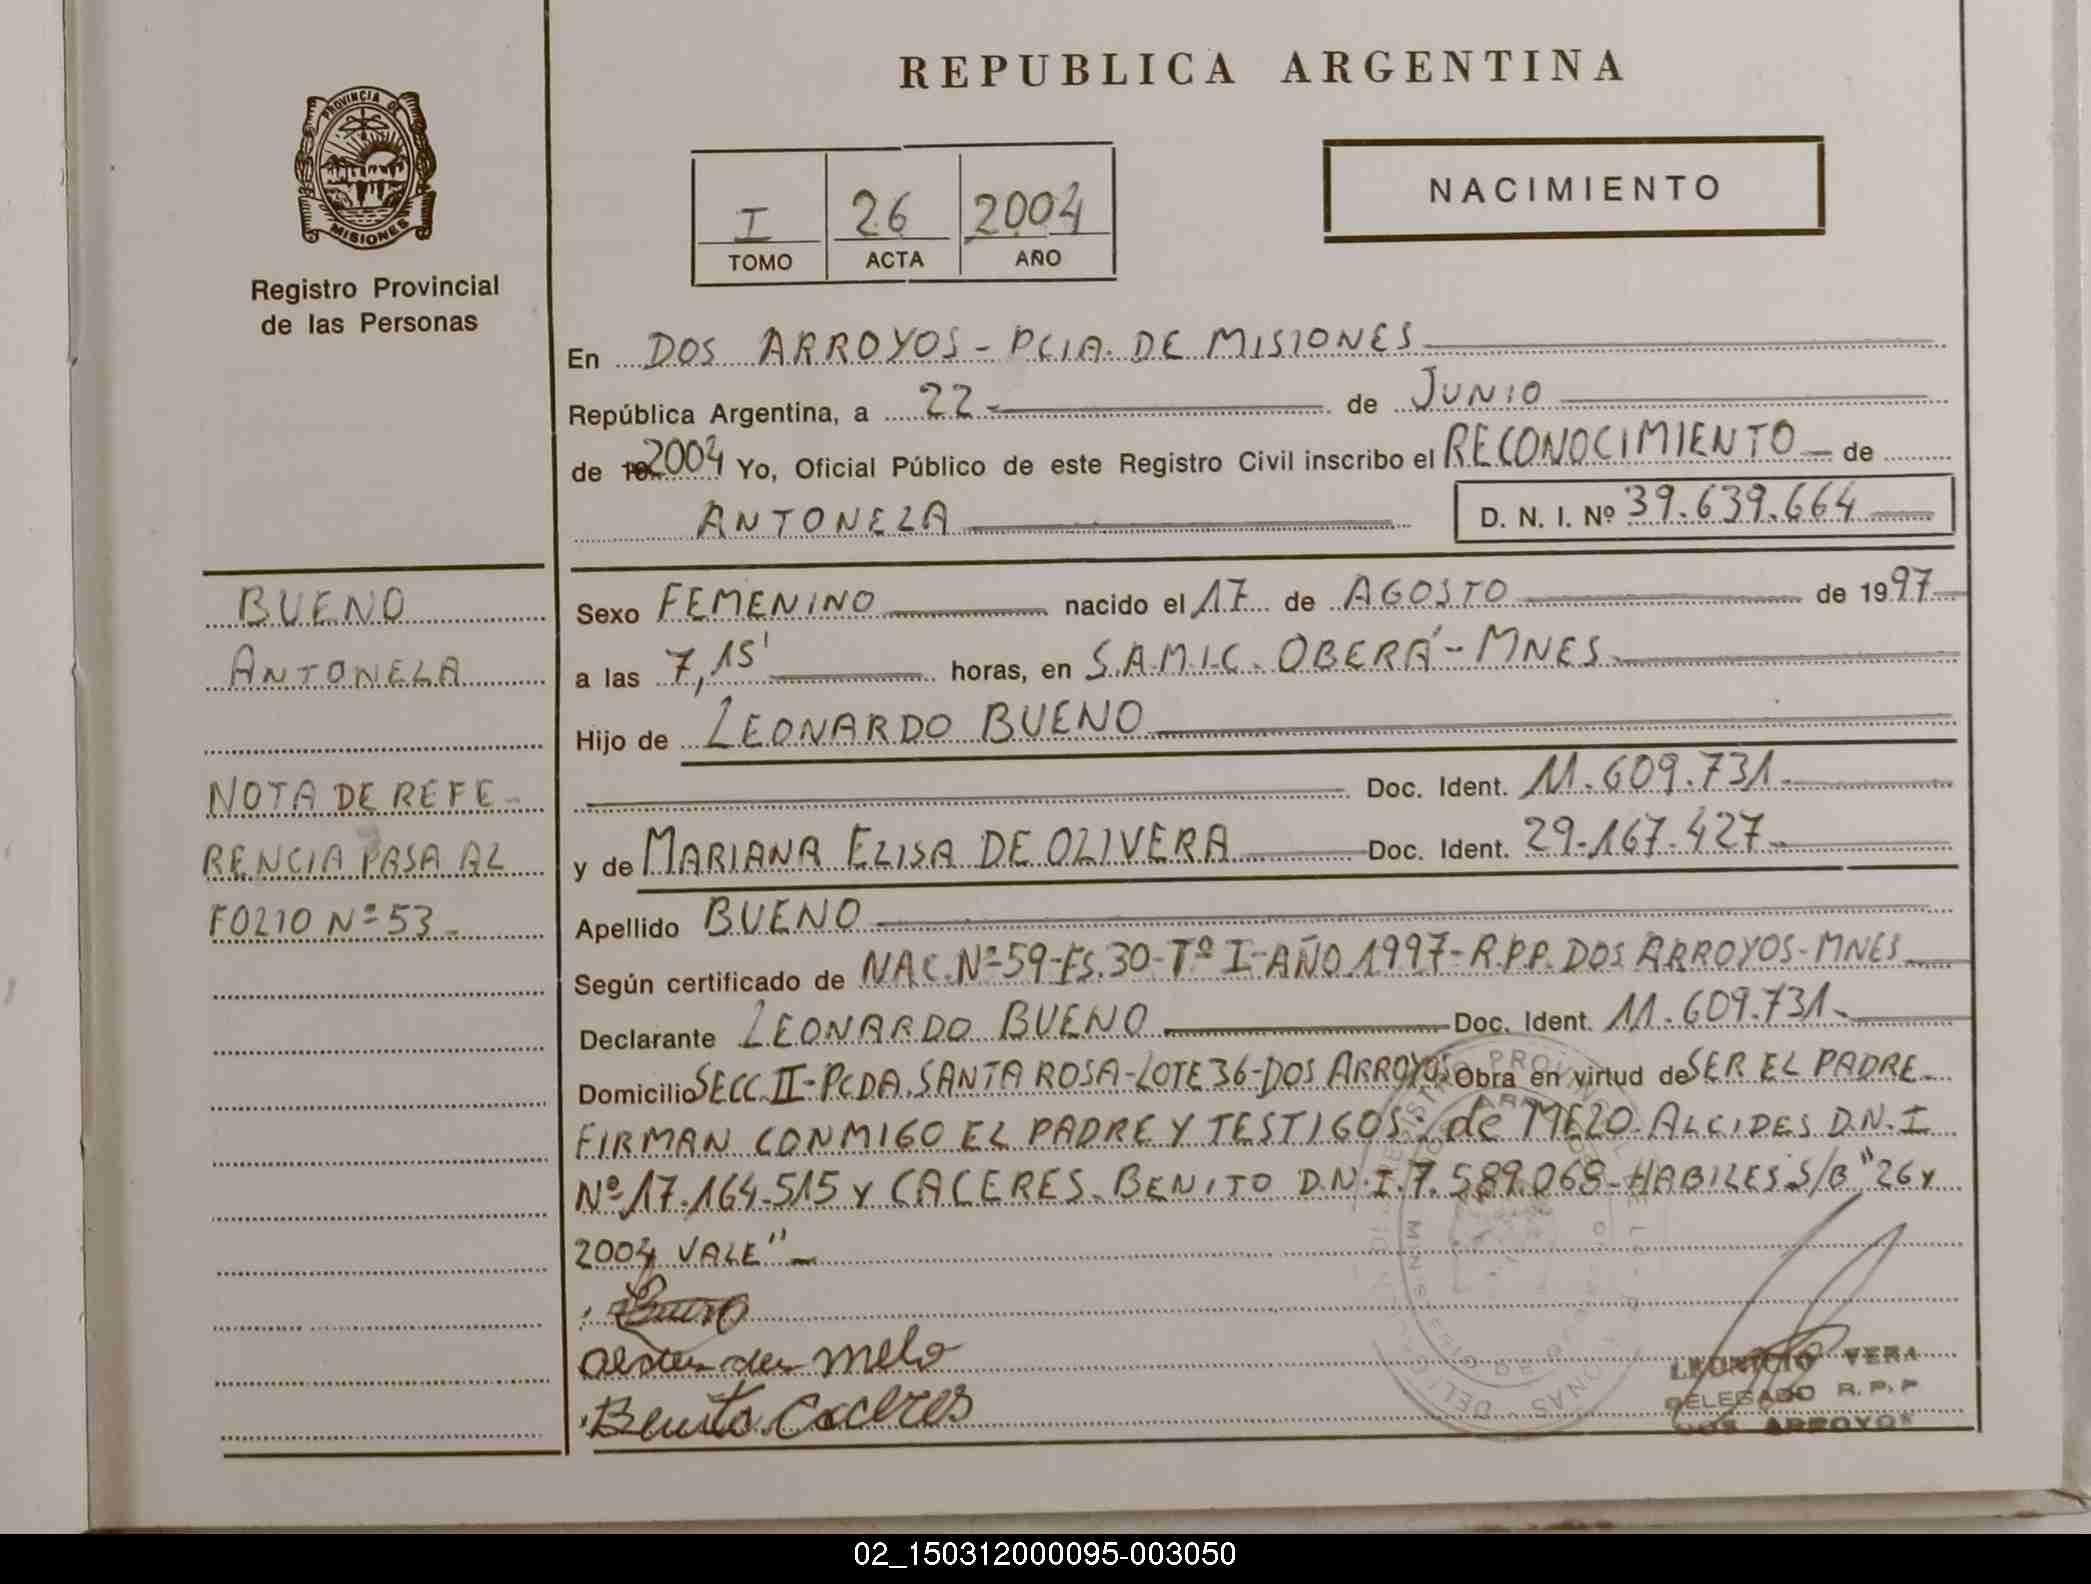 REPUBLICA ARGENTINA
PROVINCIA DE
MISIONES
Registro Provincial
de las Personas
I 26 2004
TOMO ACTA AÑO
NACIMIENTO
En DOS ARROYOS - PCIA. DE MISIONES
República Argentina, a 22 - de JUNIO
de 19 2004 Yo, Oficial Público de este Registro Civil inscribo el RECONOCIMIENTO - de
ANTONELA D. N. I. Nº 39.639.664
BUENO
ANTONELA
NOTA DE REFE-
RENCIA PASA AL
FOLIO Nº 53.-
Sexo FEMENINO nacido el 17 de AGOSTO de 1997
a las 7,15' horas, en S.A.M.I.C. OBERÁ - MNES.
Hijo de LEONARDO BUENO
Doc. Ident. 11.609.731.
y de MARIANA ELISA DE OLIVERA Doc. Ident. 29.167.427-
Apellido BUENO
Según certificado de NAC. Nº 59-Fs. 30-Tº I-AÑO 1997-R.P.P. DOS ARROYOS-MNES
Declarante LEONARDO BUENO Doc. Ident. 11.609.731.
Domicilio SECC. II-PCDA. SANTA ROSA-LOTE 36-DOS ARROYOS Obra en virtud de SER EL PADRE.
FIRMAN CONMIGO EL PADRE Y TESTIGOS: de MELO ALCIDES D.N.I
Nº 17.164.515 Y CACERES BENITO D.N.I. 7.589.068-HABILES S/B "26 Y
2004 VALE"-
Bueno
de melo
Benito Caceres
LEONICIO VERA
DELEGADO R.P.P
DOS ARROYOS
02_150312000095-003050